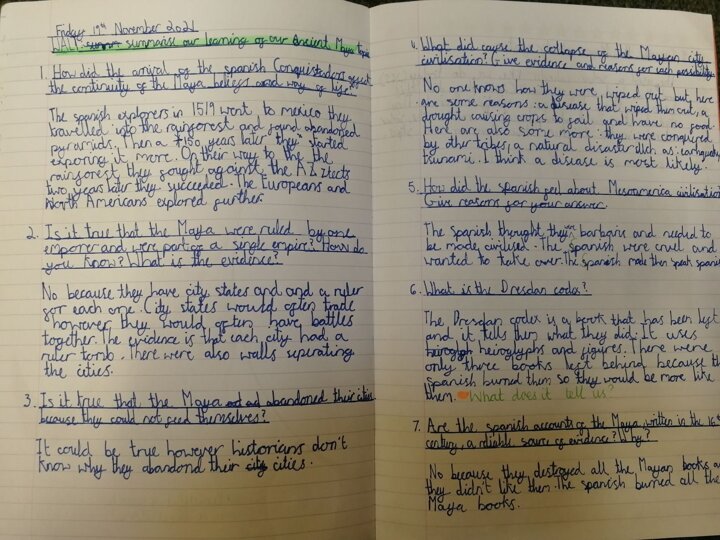 Friday 19th November 2021
WALT: summarise our learning of our Ancient Maya topic
1. How did the arrival of the spanish Conquistadors affect
the continuity of the Maya beliefs and way of life?
The spanish explorers in 1519 went to mexico they
travelled into the rainforest and found abandoned
pyramids. Then a 150 years later they started
exporing it more. On their way to the the
rainforest they fought against the Aztects
two years later they succeeded. The Europeans and
North Americans explored further.
2. Is it true that the Maya were ruled by one
emporer and were part of a single empire? How do
you know? What is the evidence?
No because they have city states and and a ruler
for each one. City states would often trade
however they would often have battles
together. The evidence is that each city had a
ruler tomb. There were also walls seperating
the cities.
3. Is it true that the Maya abandoned their cities
because they could not feed themselves?
It could be true however historians don't
know why they abandond their cities.
4. What did cause the collapse of the Mayan city
civilisation? Give evidence and reasons for each possibility.
No one knows how they were wiped out but here
are some reasons: a disease that wiped them out, a
drought causing crops to fail and have no food.
Here are also some more: they were conquered
by other tribes, a natural disaster such as: earthquake,
tsunami. I think a disease is most likely.
5. How did the spanish feel about Mesoamerica civilisation
Give reasons for your answer.
The spanish thought they barbaric and needed to
be made civilise. The spanish were cruel and
wanted to take over. The spanish made them speak spanish
6. What is the Dresdan codex?
The Dresdan codex is a book that has been left
and it tells them what they did. It uses
heiroglyphs and figures. There were
only three books left behind because the
spanish burned them so they would be more like
them. What does it tell us?
7. Are the spanish accounts of the Maya written in the 16th
century, a reliable source of evidence? Why?
No because they destroyed all the Mayan books as
they didn't like them. The spanish burned all the
Maya books.